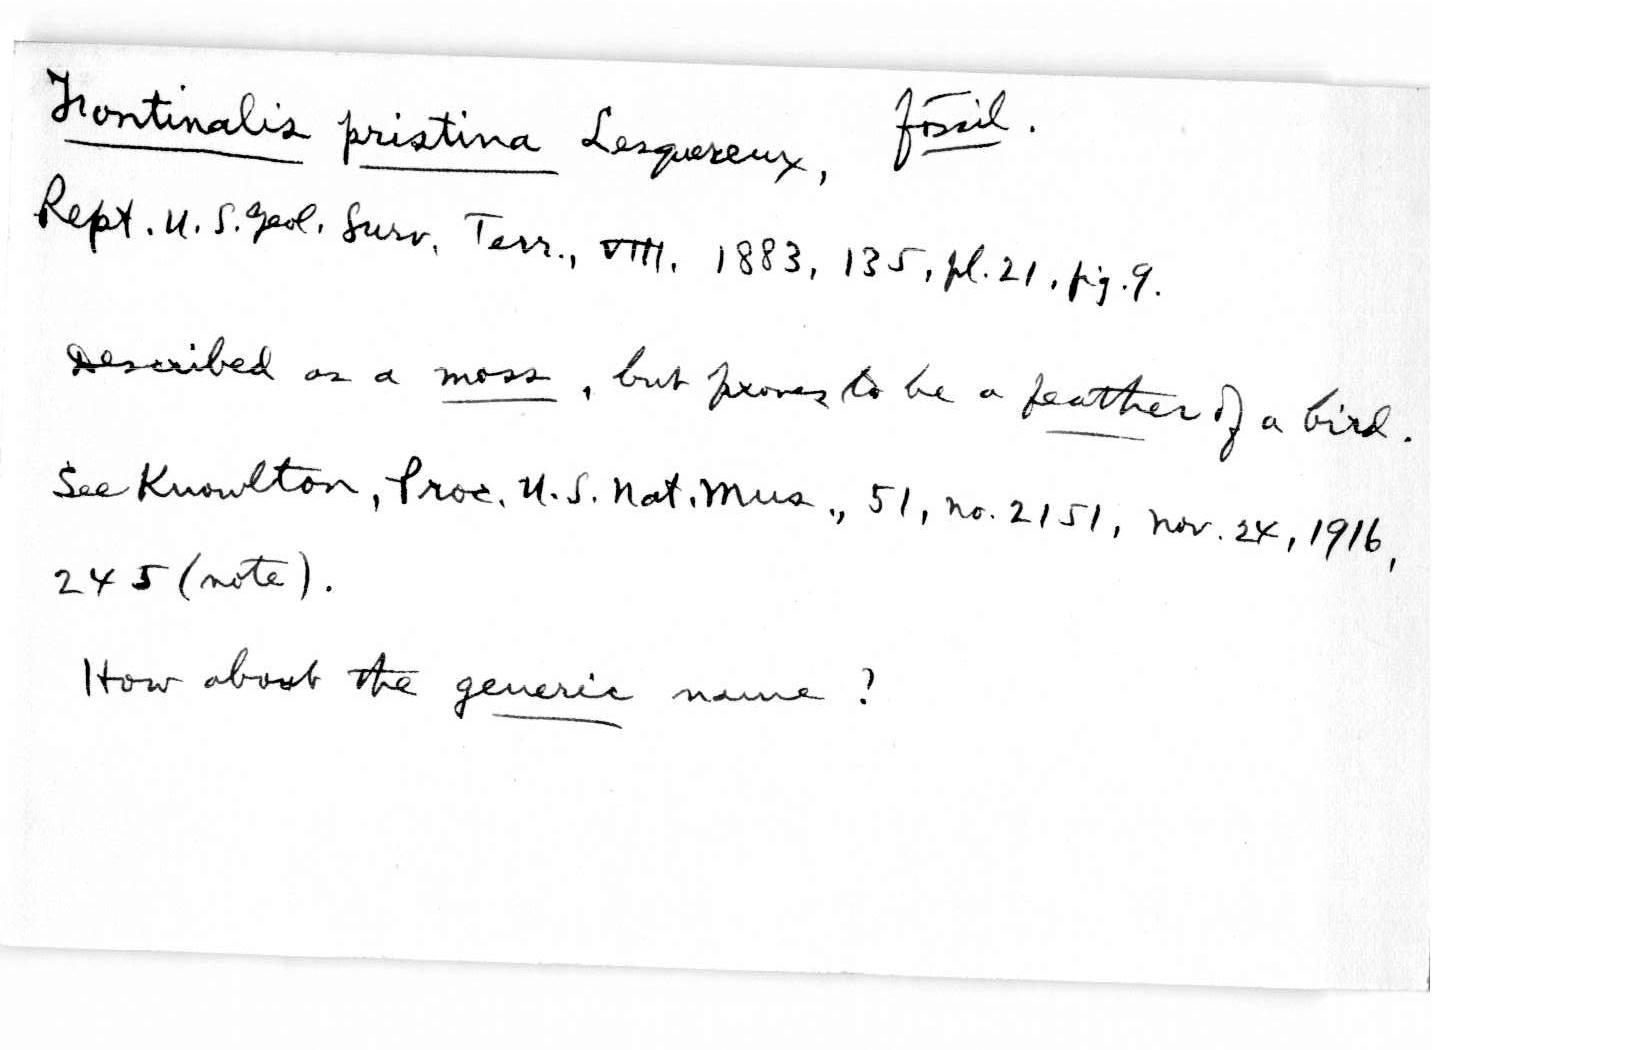 Fontinalis pristina Lesquereux, fossil.
Rept. U. S. Geol. Surv. Terr., VIII. 1883, 135, pl. 21, fig. 9.
Described as a moss, but proves to be a feather of a bird.
See Knowlton, Proc. U. S. Nat. Mus., 51, no. 2151, Nov. 24, 1916,
245 (note).
How about the generic name?